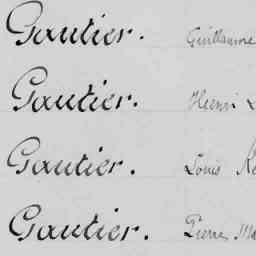 Gautier. Guillaume
Gautier. Henri
Gautier. Louis
Gautier. Pierre